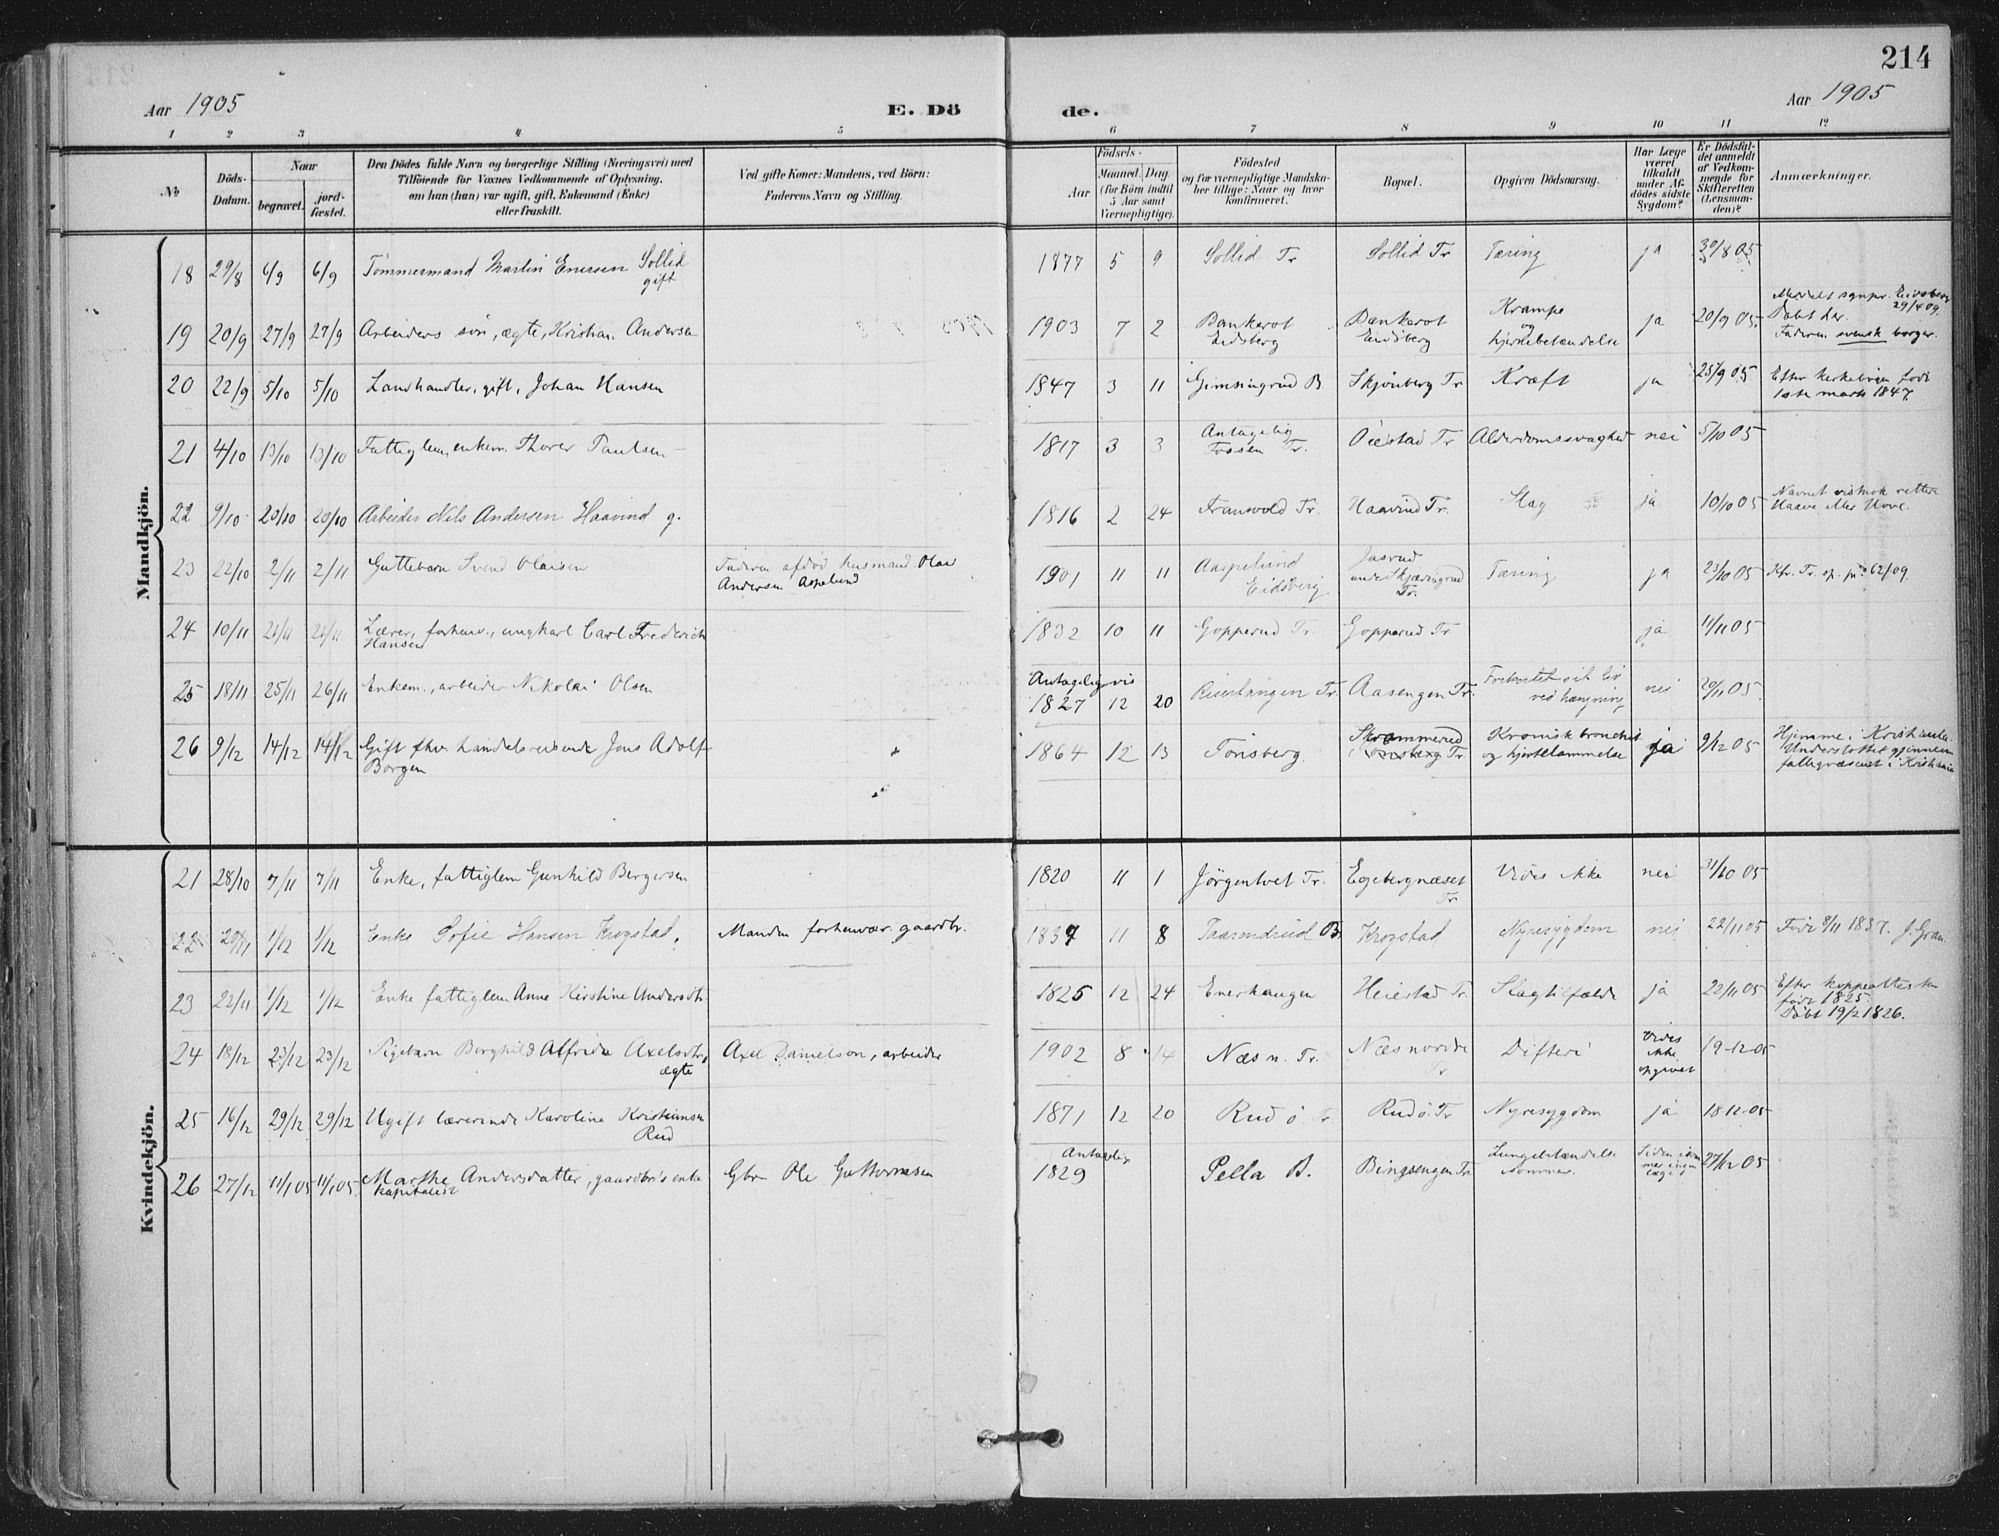 214
Aar 1905
E. Dö
de.
Aar 1905
1 2 3 4 5 6 7 8 9 10 11 12
No
Döds-Datum.
Naar
begravet.
jord-fæstet.
Den Dödes fulde Navn og borgerlige Stilling (Næringsvei) med
Tilföiende for Voxnes Vedkommende af Oplysning,
om han (hun) var ugift, gift, Enkemand (Enke)
eller fraskilt.
Ved gifte Koner: Mandens, ved Börn:
Faderens Navn og Stilling.
Födsels-
Aar
Maaned. Dag.
(for Börn indtil
5 Aar samt
Værnepligtige).
Födested
og for værnepligtige Mandska-
ber tillige: Naar og hvor
konfirmeret.
Bopæl.
Opgiven Dödsaarsag.
Har Læge
været
tilkaldt
under Af-
dödes sidste
Sygdom?
Er Dödsfal-
det anmeldt
af Vedkom-
mende for
Skifteretten
(Lensman-
den)?
Anmærkninger.
Mandkjön.
18 29/8 6/9 6/9 Tömmermand Martin Enersen Sollid gift 1877 5 9 Sollid Tr Sollid Tr Tæring ja 30/8 05
19 20/9 27/9 27/9 Arbeiders sön, ægte, Kristian Andersen 1903 7 2 Bankerot Eidsberg Bankerot Eidsberg Krampe og hjernebetændelse ja 20/9 05 Meddelt sgnpr. Eidsberg 29/4 09. Döbt her. Faderen svensk borger.
20 22/9 5/10 5/10 Landhandler, gift, Johan Hansen 1847 3 11 Gimsingrud B Skjönberg Tr Kræft ja 25/9 05 Efter kirkebogen födt 1ste marts 1847.
21 4/10 13/10 13/10 Fattiglem, enkem. Thorer Paulsen 1817 3 3 Antagelig Fossen Tr. Öiestad Tr Alderdomssvaghed nei 5/10 05
22 9/10 20/10 20/10 Arbeider Nils Andersen Haavind g. 1816 2 24 Fransvold Tr. Haavind Tr. Slag ja 10/10 05 Navnet vistnok rettere Haave eller Hove.
23 22/10 2/11 2/11 Guttebarn Svend Olaisen Faderen afdöd husmand Olai Andersen Aspelund 1901 11 11 Aaspelund Eidsberg Jasrud under Skjæringrud Tr. Tæring ja 23/10 05 Kfr. Tr. 62/09.
24 10/11 21/11 21/11 Lærer, forhenv., ungkarl Carl Frederich Hansen 1832 10 11 Gopperud Tr. Gopperud Tr ja 11/11 05
25 18/11 25/11 26/11 Enkem., arbeider Nikolai Olsen Antageligvis 1827 12 20 Risertangen Tr. Aasengen Tr. Forkortet sit liv ved hængning nei 20/11 05.
26 9/12 14/12 14/12 Gift fhv. handelsreisende Jens Adolf Borgen 1864 12 13 Tönsberg Skrammerud Tr Kronisk bronchit og hjertelammelse ja 9/12 05 Hjemme i Kristiania. Understöttet gjennem fattigvæsenet i Kristiania
Kvindekjön.
21 28/10 7/11 7/11 Enke, fattiglem Gunhild Bergersen 1820 11 1 Jörgentvet Tr. Egebergnæset Tr Vides ikke nei 31/10 05
22 20/11 1/12 1/12 Enke Sofie Hansen Krogstad, Manden forhenvær. gaardbr. 1837 11 8 Taarendrud B. Krogstad Nyresygdom nei 22/11 05 Födt 8/11 1837. J. Gran
23 22/11 1/12 1/12 Enke fattiglem Anne Kirstine Andersdtr 1825 12 24 Enerhaugen Heiestad Tr. Slagtilfælde ja 22/11 05 Efter koppeattesten födt 1825 Döbt 19/2 1826.
24 18/12 23/12 23/12 Pigebarn Borghild Alfrida Axelsdtr, ægte Axel Danielson, arbeider 1902 8 14 Næs n. Tr. Næs nordre Tr Difteri Vides ikke opgivet 19-12-05
25 16/12 29/12 29/12 Ugift lærerinde Karoline Kristiansen Rud 1871 12 20 Rud ö. Tr. Rud ö. Tr Nyresygdom ja 18-12-05
26 27/12 11/1 05 11/1 05. Marthe Andersdatter, gaardbr's enke kapitalist Gbr Ole Guttormsen Antagelig 1829 Pella B. Bingsengen Tr. Lungebetændelse Siden i sommer ingen læge 27/12 05